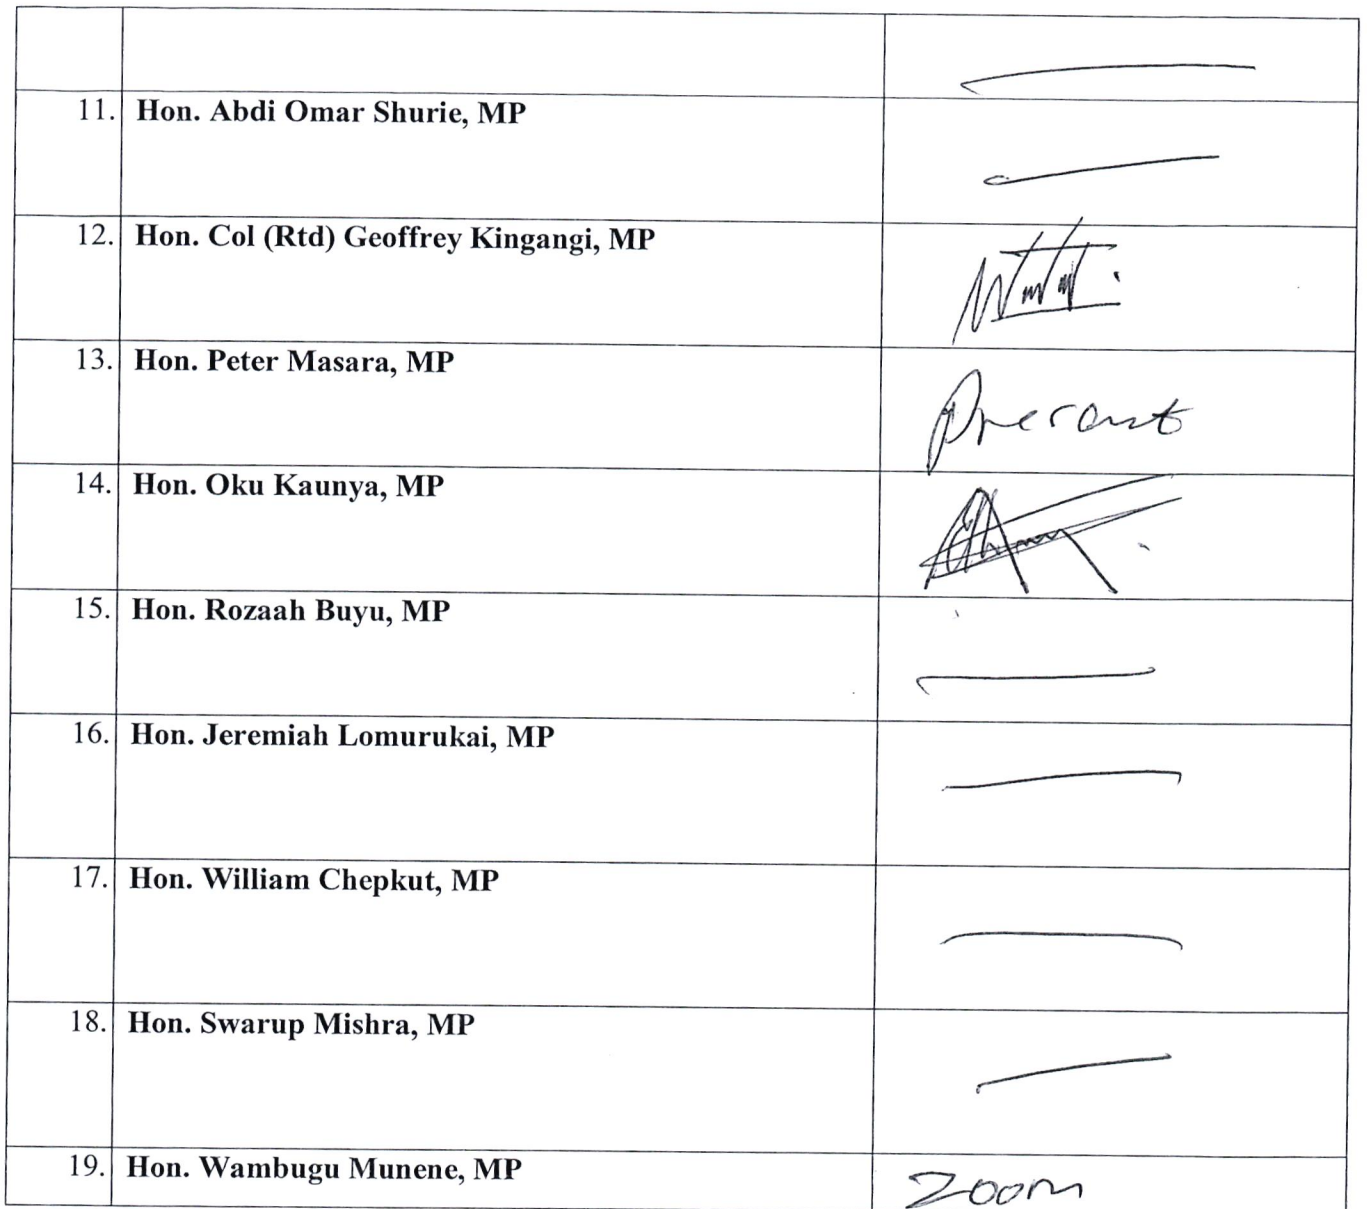 11. Hon. Abdi Omar Shurie, MP
12. Hon. Col (Rtd) Geoffrey Kingangi, MP
13. Hon. Peter Masara, MP
Present
14. Hon. Oku Kaunya, MP
15. Hon. Rozaah Buyu, MP
16. Hon. Jeremiah Lomurukai, MP
17. Hon. William Chepkut, MP
18. Hon. Swarup Mishra, MP
19. Hon. Wambugu Munene, MP
Zoom